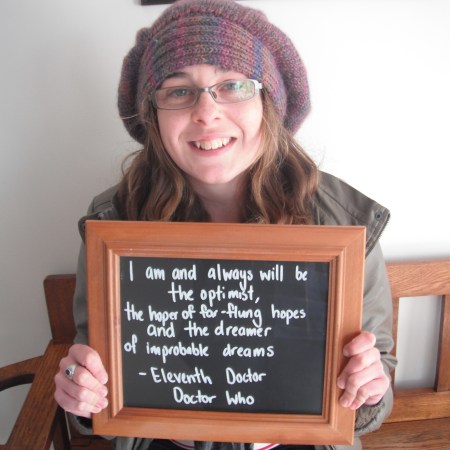 I am and always will be
the optimist,
the hoper of far-flung hopes
and the dreamer
of improbable dreams
- Eleventh Doctor
Doctor Who